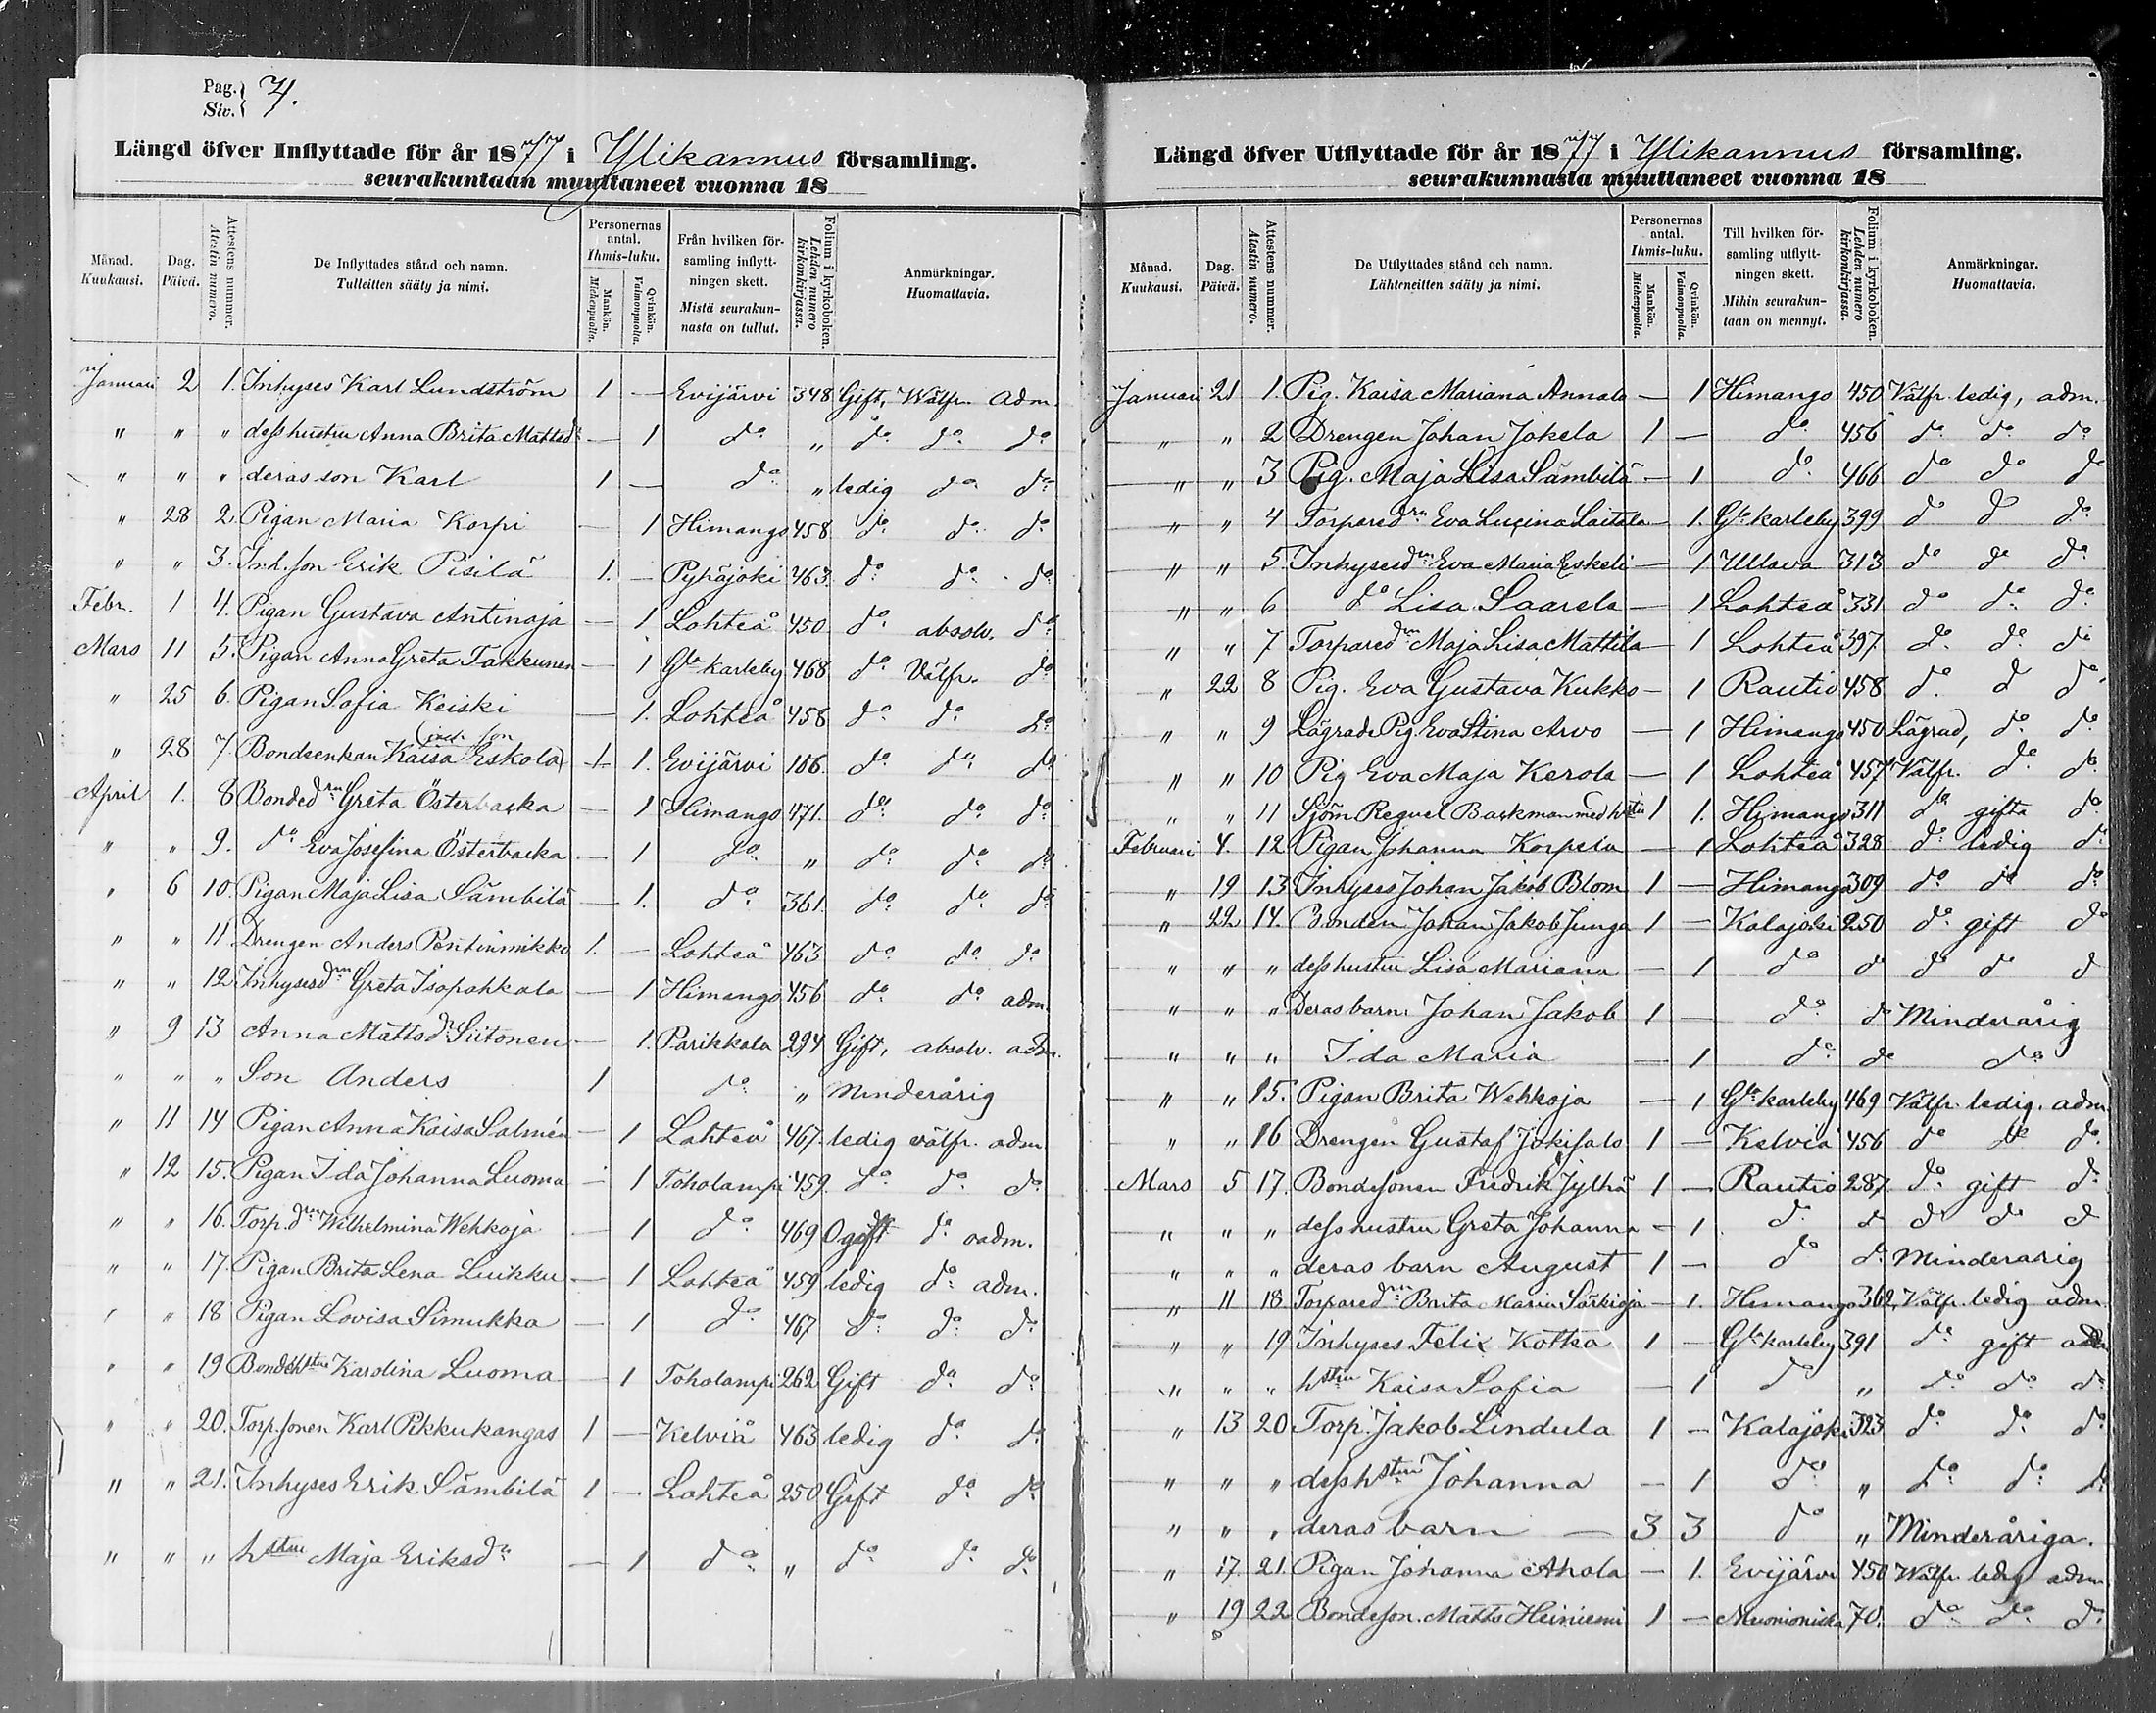 Pag. 7.
Siv.
Längd öfver Inflyttade för år 1877 i Ylikannus församling.
seurakuntaan muuttaneet vuonna 18
Månad. Kuukausi.
Dag. Päivä.
Attestens nummer. Atestin numero.
De Inflyttades stånd och namn. Tulleitten sääty ja nimi.
Personernas antal. Ihmis-luku.
Mankön. Miehenpuolta.
Qvinkön. Vaimonpuolta.
Från hvilken församling inflyttningen skett. Mistä seurakunnasta on tullut.
Folium i kyrkoboken. Lehden numero kirkonkirjassa.
Anmärkningar. Huomattavia.
Januari 2 1. Inhyses Karl Lundström 1 — Evijärvi 348 Gift, Wälfr. adm.
" " " dess hustru Anna Brita Mattsdr — 1 do " do do do
" " " deras son Karl 1 — do " ledig do do
" 28 2. Pigan Maria Korpi — 1 Himango 458 do do do
" " 3. Inh. son Erik Pisilä 1. — Pyhäjoki 463 do do do
Febr. 1 4. Pigan Gustava Antinoja — 1 Lohteå 450 do absolv. do
Mars 11 5. Pigan Anna Greta Takkunen — 1 Gla karleby 468 do Välfr. do
" 25 6. Pigan Sofia Keiski — 1. Lohteå 456 do do do
" 28 7. Bondeenkan Kaisa Eskola 1 1. Evijärvi 106 do do do
April 1. 8 Bondedrn Greta Österbacka — 1 Himango 471. do do do
" " 9. do Eva Josefina Österbacka — 1 do " do do do
" 6 10. Pigan Maja Lisa Sämbilä — 1. do 361. do do do
" " 11 Drengen Anders Pentinmikko 1. — Lohteå 463 do do do
" " 12 Inhysesdrn Greta Isopahkala — 1 Himango 456 do do adm.
" 9 13 Anna Mattsdr Siitonen — 1. Parikkala 294 Gift, absolv. adm.
" " " Son Anders 1 do " Minderårig
" 11 14 Pigan Anna Kaisa Salmén — 1 Lohteå 467. ledig välfr. adm
" 12 15. Pigan Ida Johanna Luoma — 1 Toholampi 459. do do do
" " 16. Torp.drn Wilhelmina Wehkoja — 1 do 469 Ogift do oadm.
" " 17. Pigan Brita Lena Luikku — 1 Lohteå 459 ledig do adm.
" " 18 Pigan Lovisa Simukka — 1 do 467 do do do
" " 19 Bondehstru Karolina Luoma — 1 Toholampi 262 Gift do do
" " 20. Torp.sonen Karl Pikkukangas 1 — Kelviå 463 ledig do do
" " 21. Inhyses Erik Sämbilä 1 — Lohteå 250 Gift do do
" " " hstru Maja Eriksdr — 1 do " do do do
Längd öfver Utflyttade för år 1877 i Ylikannus församling.
seurakunnasta muuttaneet vuonna 18
Månad. Kuukausi.
Dag. Päivä.
Attestens nummer. Atestin numero.
De Utflyttades stånd och namn. Lähteneitten sääty ja nimi.
Personernas antal. Ihmis-luku.
Mankön. Miehenpuolta.
Qvinkön. Vaimonpuolta.
Till hvilken församling utflyttningen skett. Mihin seurakuntaan on mennyt.
Folium i kyrkoboken. Lehden numero kirkonkirjassa.
Anmärkningar. Huomattavia.
Januari 21 1. Pig. Kaisa Mariana Annala — 1 Himango 450 Välfr. ledig, adm.
" " 2 Drengen Johan Jokela 1 — do 456 do do do
" " 3 Pig. Maja Lisa Sämbilä — 1 do 466 do do do
" " 4 Torparedrn Eva Lucina Laitala — 1. Gla karleby 399 do do do
" " 5 Inhysesdrn Eva Maria Eskeli — 1 Ullava 313 do do do
" " 6 do Lisa Saarela — 1 Lohteå 331 do do do
" " 7 Torparedrn Maja Lisa Mattila — 1 Lohteå 397 do do do
" 22 8 Pig. Eva Gustava Kukko — 1 Rautio 458 do do do
" " 9 Lägrade Pig. Eva Stina Arvo — 1 Himango 450 Lägrad, do do
" " 10 Pig Eva Maja Kerola — 1 Lohteå 457 Välfr. do do
" " 11 Sjöm Reguel Backman med hstru 1 1. Himango 311 do gifta do
Februari 4. 12 Pigan Johanna Korpela — 1 Lohteå 328 do ledig do
" 19 13 Inhyses Johan Jakob Blom 1 — Himango 309 do do do
" 22 14. Bonden Johan Jakob Junga 1 — Kalajoki 250 do gift do
" " " dess hustru Lisa Mariana — 1 do do do do do
" " " Deras barn: Johan Jakob 1 — do do Minderårig
" " " Ida Maria — 1 do do do
" " 15. Pigan Brita Wehkoja — 1 Gla karleby 469 Välfr. ledig. adm.
" " 16 Drengen Gustaf Jokisalo 1 — Kelviå 456 do do do
Mars 5 17. Bondesonen Fredrik Jylhä 1 — Rautio 287 do gift do
" " " dess hustru Greta Johanna — 1 do do do do do
" " " deras barn August 1 — do do Minderårig
" 11 18. Torparedrn Brita Maria Särkioja — 1. Himango 362 Välfr. ledig adm
" " 19 Inhyses Felix Kotka 1 — Gla karleby 391 do gift adm
" " " hstru Kaisa Sofia — 1 do " do do do
" 13 20 Torp. Jakob Lindula 1 — Kalajoki 323 do do do
" " " dess hstru Johanna — 1 do " do do do
" " " deras barn — 3 3 do " Minderåriga.
" 17. 21. Pigan Johanna Ahola — 1. Evijärvi 450 Wälfr ledig adm
" 19 22 Bondeson. Matts Heiniemi 1 — Muonioniska 70. do do do